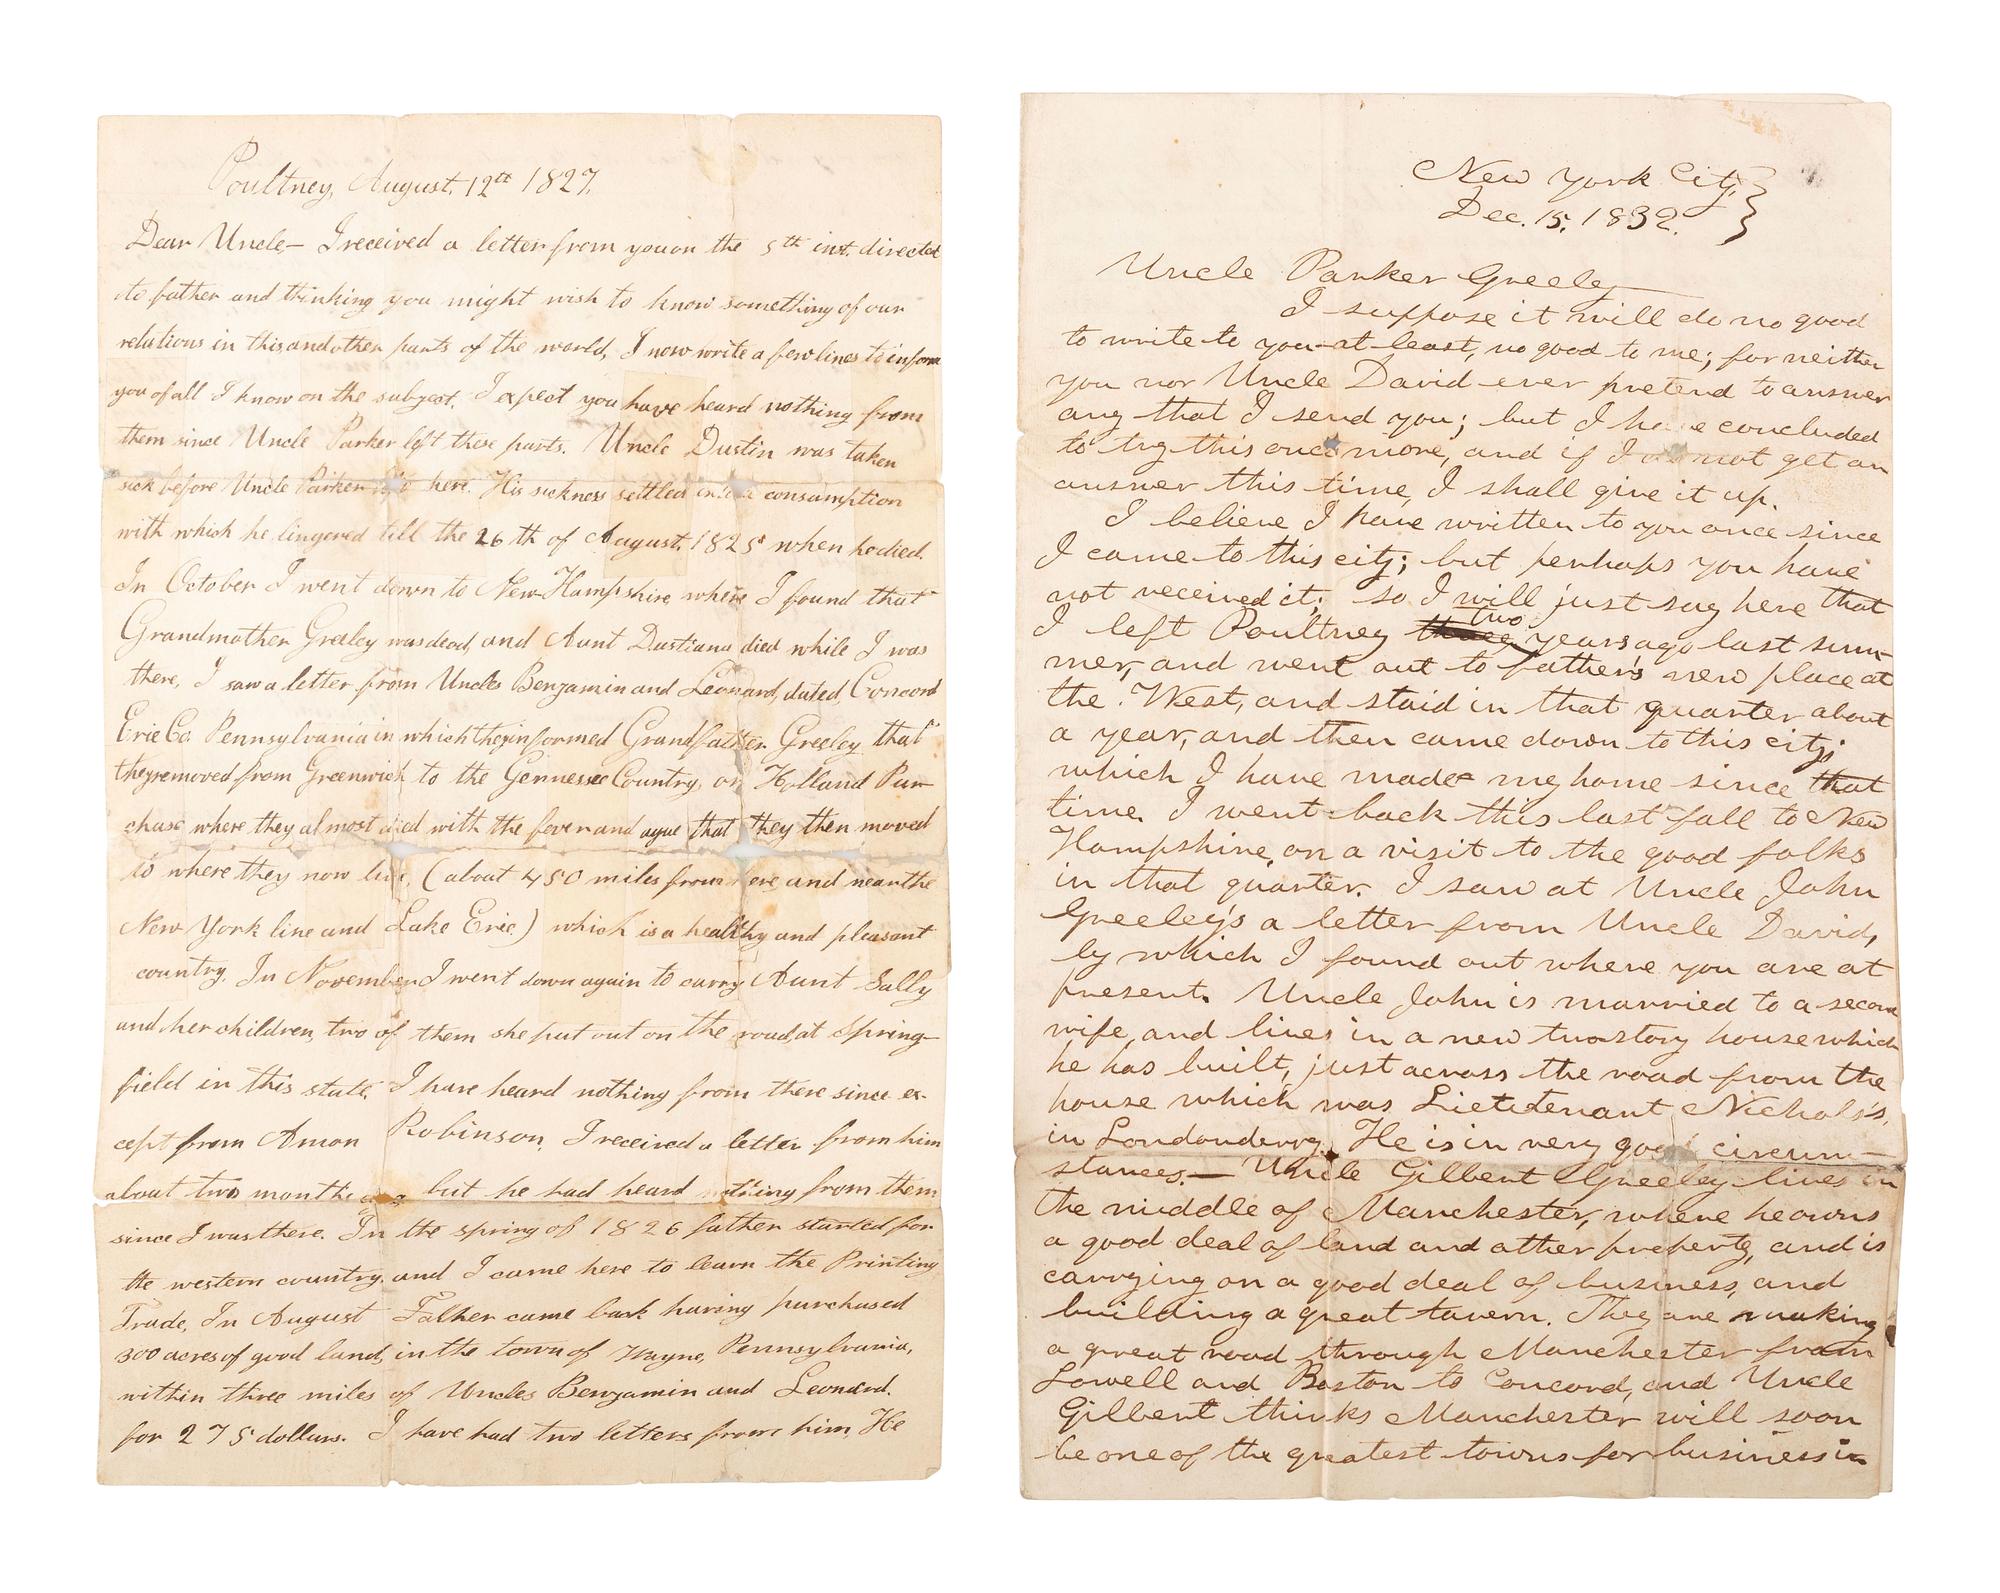 Poultney, August, 12th 1827.
Dear Uncle— I received a letter from you on the 5th inst. directed
to father and thinking you might wish to know something of our
relations in this and other parts of the world, I now write a few lines to inform
you of all I know on the subject. I expect you have heard nothing from
them since Uncle Parker left these parts. Uncle Dustin was taken
sick before Uncle Parker left here. His sickness settled into a consumption
with which he lingered till the 26th of August, 1825 when he died.
In October I went down to New-Hampshire where I found that
Grandmother Greeley was dead, and Aunt Dustiana died while I was
there, I saw a letter from Uncles Benjamin and Leonard, dated, Concord
Erie Co. Pennsylvania in which they informed Grandfather Greeley that
they removed from Greenwich to the Gennessee Country, or Holland Pur-
chase where they almost died with the fever and ague that they then moved
to where they now live, (about 450 miles from here and near the
New York line and Lake Erie) which is a healthy and pleasant
country. In November I went down again to carry Aunt Sally
and her children, two of them she put out on the road, at Spring-
field in this state. I have heard nothing from there since ex-
cept from Amon Robinson. I received a letter from him
about two months but he had heard nothing from them
since I was there. In the spring of 1826 father started for
the western country and I came here to learn the Printing
Trade, In August Father came back having purchased
300 acres of good land, in the town of Wayne, Pennsylvania,
within three miles of Uncles Benjamin and Leonard.
for 275 dollars. I have had two letters from him, He
New York City, }
Dec. 15, 1832.
Uncle Parker Greeley—
I suppose it will do no good
to write to you—at least, no good to me; for neither
you nor Uncle David ever pretend to answer
any that I send you; but I have concluded
to try this once more, and if I do not get an
answer this time, I shall give it up.
I believe I have written to you once since
I came to this city; but perhaps you have
not received it; so I will just say here that
two
I left Poultney three years ago last sum-
mer, and went out to father's new place at
the West, and staid in that quarter about
a year, and then came down to this city;
which I have made my home since that
time. I went back this last fall to New
Hampshire, on a visit to the good folks
in that quarter. I saw at Uncle John
Greeley's a letter from Uncle David,
by which I found out where you are at
present. Uncle John is married to a second
wife, and lives in a new two story house which
he has built, just across the road from the
house which was Lieutenant Nichols's,
in Londonderry. He is in very good circum-
stances.— Uncle Gilbert Greeley lives in
the middle of Manchester, where he owns
a good deal of land and other property, and is
carrying on a good deal of business, and
building a great tavern. They are making
a great road through Manchester from
Lowell and Boston to Concord, and Uncle
Gilbert thinks Manchester will soon
be one of the greatest towns for business in